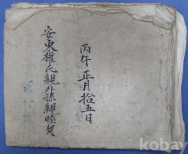 丙午正月拾五日
安東權氏親外孫錦睦契
kobay